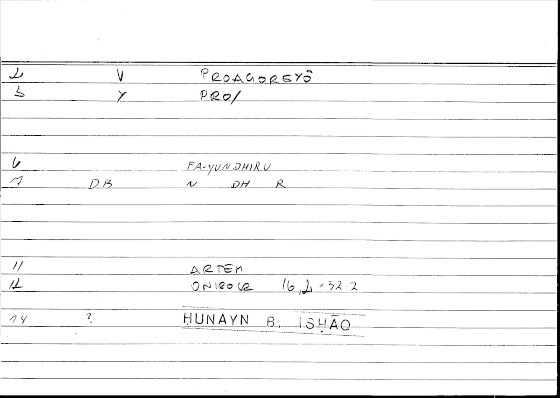 2 V PROAGOREYŌ
3 Y PRO/
6 FA-YUNDHIRU
7 DB N DH R
11 ARTEM
12 ONIROCR 16,2-322
14 ? ḤUNAYN B. ISḤĀQ